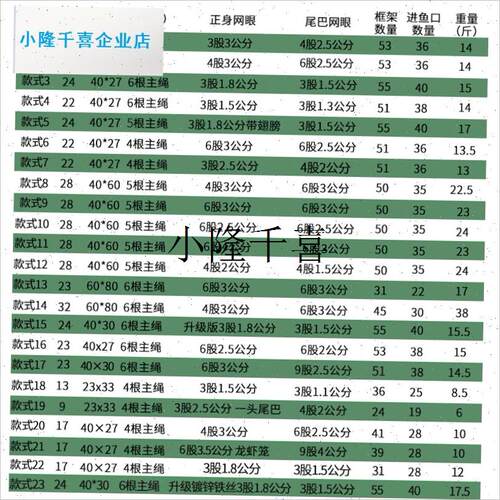 小隆千喜企业店
) 正身网眼 尾巴网眼 框架数量 进鱼口数量 重量(斤)
3股3公分 4股2.5公分 53 36 14
4股3公分 6股2.5公分 53 36 14
款式3 24 40*27 6根主绳 3股1.8公分 3股1.5公分 55 40 15
款式4 22 40*27 4根主绳 3股1.5公分 3股1.3公分 51 38 14
款式5 24 40*27 5根主绳 3股1.8公分带翅膀 3股1.5公分 55 40 17
款式6 22 40*27 4根主绳 6股3公分 6股2.5公分 51 36 13.5
款式7 22 40*27 4根主绳 3股2.5公分 4股2公分 51 36 13
款式8 28 40*60 5根主绳 4股3公分 6股2.5公分 50 35 22.5
款式9 28 40*60 5根主绳 6股3公分 6股2.5公分 50 35 23
款式10 28 40*60 5根主绳 6股2.5公分 6股2.5公分 50 35 24
款式11 28 40*60 5根主绳 6股3公分 50 35 23
款式12 28 40*60 5根主绳 4股2公分 4股1.5公分 50 35 24
小隆千喜
款式13 23 60*80 6根主绳 6股3公分 6股3公分 31 22 17
款式14 32 60*80 6根主绳 4股3公分 6股3公分 45 30 38
款式15 24 40*30 6根主绳 升级版3股1.8公分 3股1.5公分 55 40 15.5
款式16 23 40x27 6根主绳 6股2.5公分 6股2.5公分 53 38 15
款式17 23 40×30 6根主绳 6股3公分 9股2.5公分 51 38 14.5
款式18 13 23x33 4根主绳 3股1.5公分 3股1.1公分 36 25 8.5
款式19 9 23x33 4根主绳 3股2.5公分 一头尾巴 4股2公分 24 19 6
款式20 17 40×27 4根主绳 4股3公分 6股2.5公分 41 28 10
款式21 17 40×27 4根主绳 6股3.5公分 龙虾笼 9股4公分 39 28 10
款式22 17 40×27 4根主绳 3股1.8公分 3股1.5公分 31 28 12
款式23 24 40*30 6根主绳 升级镀锌铁丝3股1.8公分 3股1.5公分 55 40 17.5